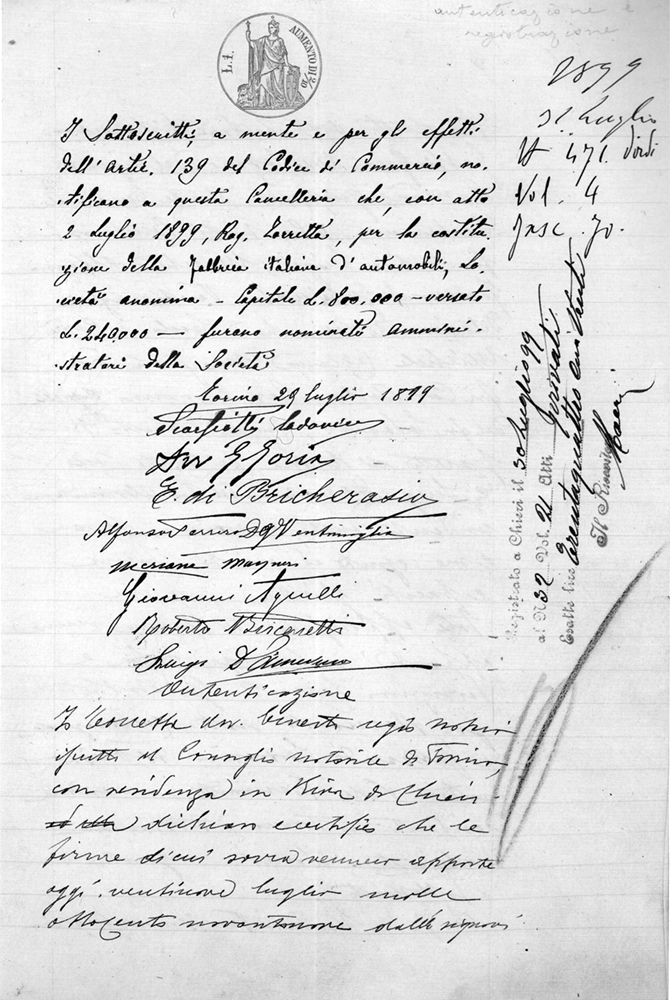 autenticazione e
registrazione
L. 1.
AUMENTO DI 2/10
1899
31 Luglio
N 471. d'ord
Vol. 4
Fasc. 70.
I Sottoscritti, a mente e per gli effetti
dell'Artic. 139 del Codice di Commercio, no-
tificano a questa Cancelleria che, con atto
2 Luglio 1899, Rog. Torretta, per la costitu-
zione della Fabbrica italiana d'automobili, So-
cietà anonima - Capitale L. 800.000 - versato
L. 240.000 - furono nominati Ammini-
stratori della Società
Torino 29 luglio 1899
Scarfiotti Lodovico
Avv C Goria
E. di Bricherasio
Alfonso Ferrero Di Ventimiglia
Michele
Giovanni Agnelli
Roberto Biscaretti
Luigi Damevino
Autenticazione
Io Torretta dr. regio notaio
il Consiglio notarile di Torino,
con residenza in Riva di Chieri
dichiaro e certifico che le
firme di cui sovra vennero apposte
oggi ventinove luglio mille
ottocento novantanove dalli signori
Registrato a Chieri il 30 Luglio 99
al N. 32 Vol. 21 Atti Privati
Esatto lire Trentaquattro cent Venti
Il Ricevitore